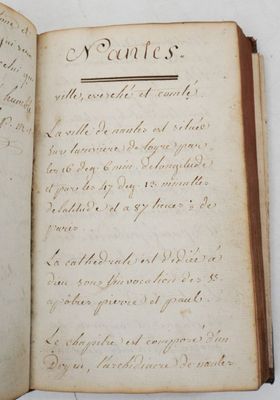 Nantes.
ville, evesché et comté.
La ville de nantes est située
sur la riviere de loyre par
les 16 deg. 6 min. de longitude
et par les 47 deg. 13 minuttes
de latitude et a 87 lieues de
paris.
La cathedrale est dediée à
dieu sous l'invocation des Sts
apôtres pierre et paul.
Le chapitre est composé d'un
Doyen, l'archidiacre de nantes